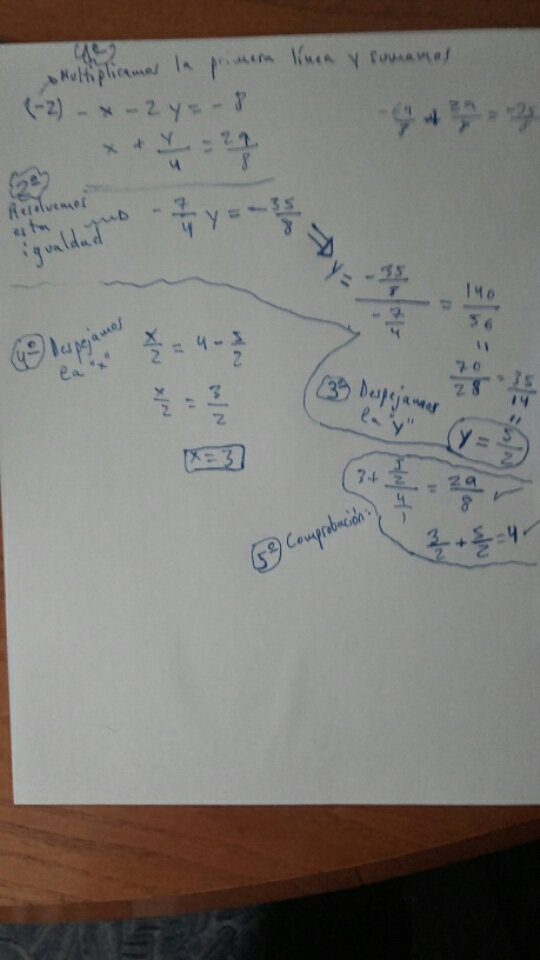 1º
Multiplicamos la primera línea y sumamos
(-2) - x - 2y = - 8
x + y/4 = 29/8
-64/8 + 29/8 = -35/8
2º
Resolvemos esta igualdad
- 7/4 y = - 35/8
y = (-35/8)/(-7/4) = 140/56
"
70/28 = 35/14
"
3º Despejamos la "y"
y = 5/2
4º Despejamos la "x"
x/2 = 4 - 5/2
x/2 = 3/2
x = 3
5º Comprobación:
3 + (5/2)/(4/1) = 29/8 ✓
3/2 + 5/2 = 4 ✓